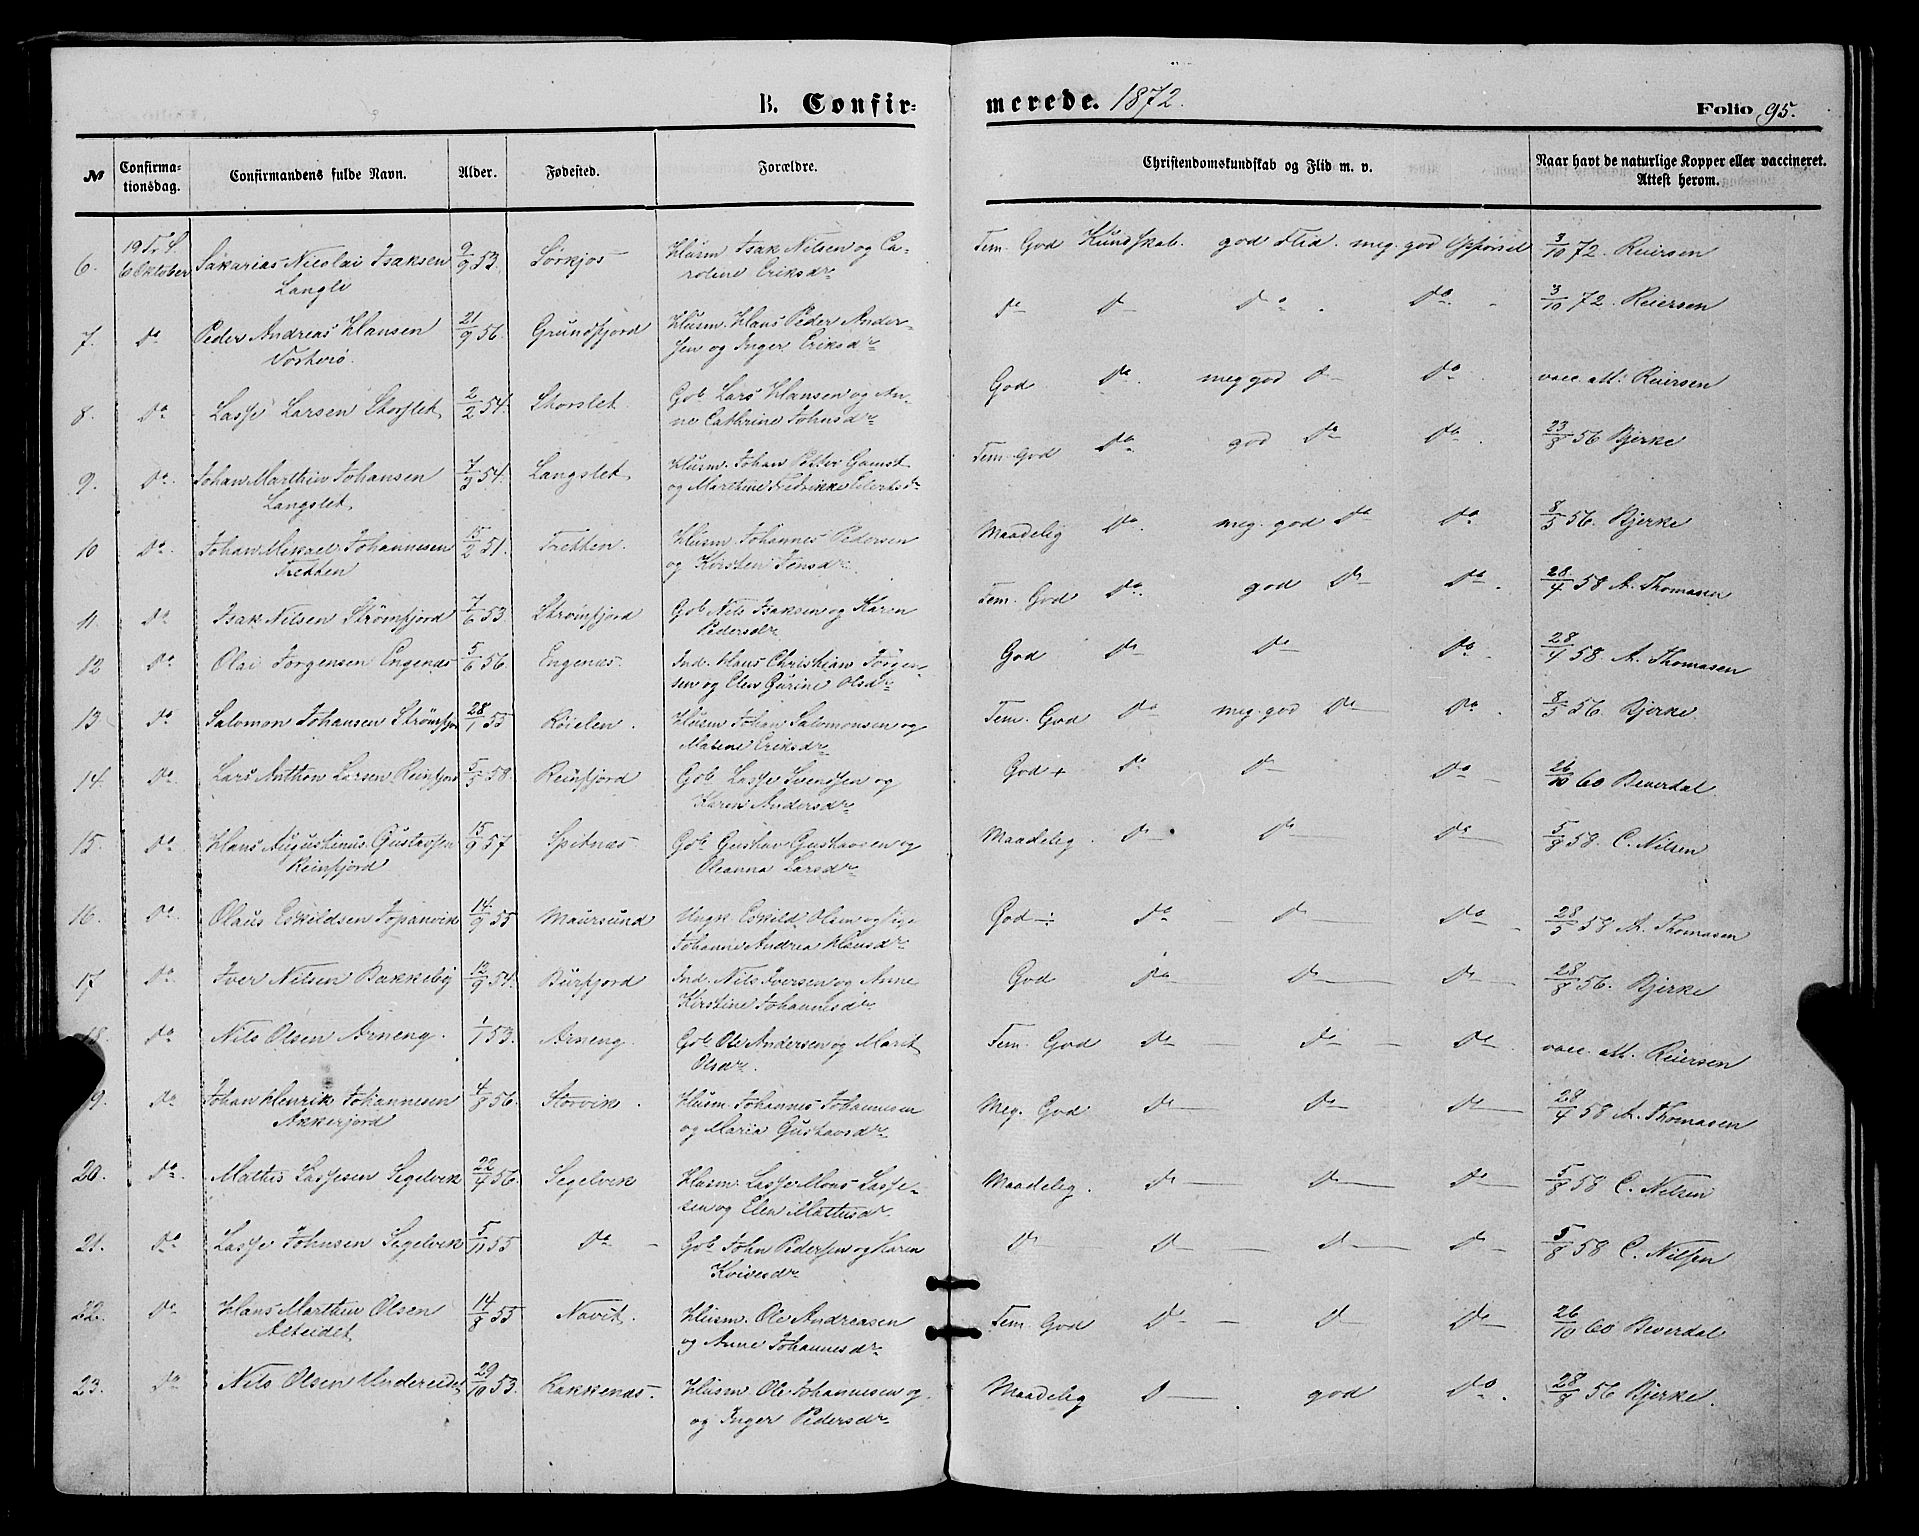 B. Confirmerede. 1872. Folio 95.
№ Confirmationsdag. Confirmandens fulde Navn. Alder. Fødested. Forældre. Christendomskundskab og Flid m. v. Naar havt de naturlige Kopper eller vaccineret. Attest herom.
6. 19 Tr. S. 6 Oktober Sakarias Nicolai Isaksen Langli 9/9 53. Sørkjos Husm Isak Nilsen og Caroline Eriksdr Tem. God Kundskab. god Flid. meg. god Opførsel 3/10 72. Reiersen
7. Do Peder Andreas Hansen Vorterø. 21/9 56. Grundfjord Husm. Hans Peder Andersen og Inger Eriksdr Do D Do. Do 3/10 72. Reiersen
8. Do Lasse Larsen Storslet 2/2 54. Storslet. Gbr Lars Hansen og Anne Cathrine Johnsdr God Do. meg god D Do vacc. att: Reiersen
9. Do. Johan Marthin Johansen Langslet Langslet Husm. Johan Petter Gamst og Marthine Fredrikke Eilertsdr Tem. God Do. god Do Do 23/8 56 Bjerke
10 Do. Johan Mikael Johannesen Tretten 15/2 51. Tretten. Husm Johannes Pedersen og Kirsten Jensdr Maadelig Do. meg. god Do Do 8/5 56. Bjerke
11. Do Isak Nilsen Strømfjord 7/6 53. Strømfjord Gbr Nils Isaksen og Karen Pedersdr Tem. God Do. god Do Do. 28/4 58 A. Thomasen
12 Do Olai Jørgensen Engenæs 5/6 56. Engenæs. Ind. Hans Christian Jørgensen og Elen Gurine Olsdr God Do Do Do 28/4 58. A. Thomasen
13 Do Salomon Johansen Strømfjor 28/1 55 Røielen. Husm Johan Salomonsen og Maline Eriksdr Tem. God Do meg. god Do Do. 8/5 56. Bjerke.
14. Do. Lars Anthon Larsen Reinfjord 5/5 58. Reinfjord Gbr Lasse Svendsen og Karen Andersdr God + Do D Do 26/10 60 Beverdal
15. Do Hans Augustinus Gustavsen Reinfjord 15/9 57 Spitnæs Gbr Gustav Gustavsen og Oleanna Larsdr Maadelig. Do Do Do 5/8 58. C. Nilsen
16. Do. Olaus Eskildsen Jøpanvik 14/9 55 Maursund Ungk Eskild Olsen og Pige Johanne Andrea Hansdr God -: Do Do Do 28/5 58 A. Thomasen
17 Do Iver Nilsen Bakkeby 12/9 54. Burfjord Ind. Nils Iversen og Anne Kirstine Johannesdr. God Do Do Do 28/8 56. Bjerke
18. Do Nils Olsen Arneng. 1/1 53. Arneng. Gbr Ole Andersen og Marit Olsdr. Tem. God Do Do Do vacc. att. Reiersen
19. Do Johan Henrik Johannesen Akkerfjord 4/8 56. Storvik. Husm. Johannes Johannesen og Maria Gustavsdr Meg. God Do Do Do 28/4 58 A. Thomasen
20. Do. Mathis Lassesen Segelvik 22/4 56. Segelvik Husm. Lasse Mons Lassesen og Elen Mathisdr Maadelig. Do Do Do 5/8 58 C. Nilsen
21. Do Lasse Johnsen Segelvik 5/11 55 Do Gbr John Pedersen og Karen Kvivesdr D D D Do 5/8 58 C. Nilsen
22. Do Hans Marthin Olsen Alteidet 14/8 55 Navit. Husm. Ole Andreasen og Anne Johannesdr. Tem. God Do D Do 26/10 60 Beverdal
23. Do Nils Olsen Undereidet 29/10 53. Lakkenæs. Husm Ole Johannesen og og Inger Pedersdr Maadelig D god Do. 28/8 56 Bjerke.